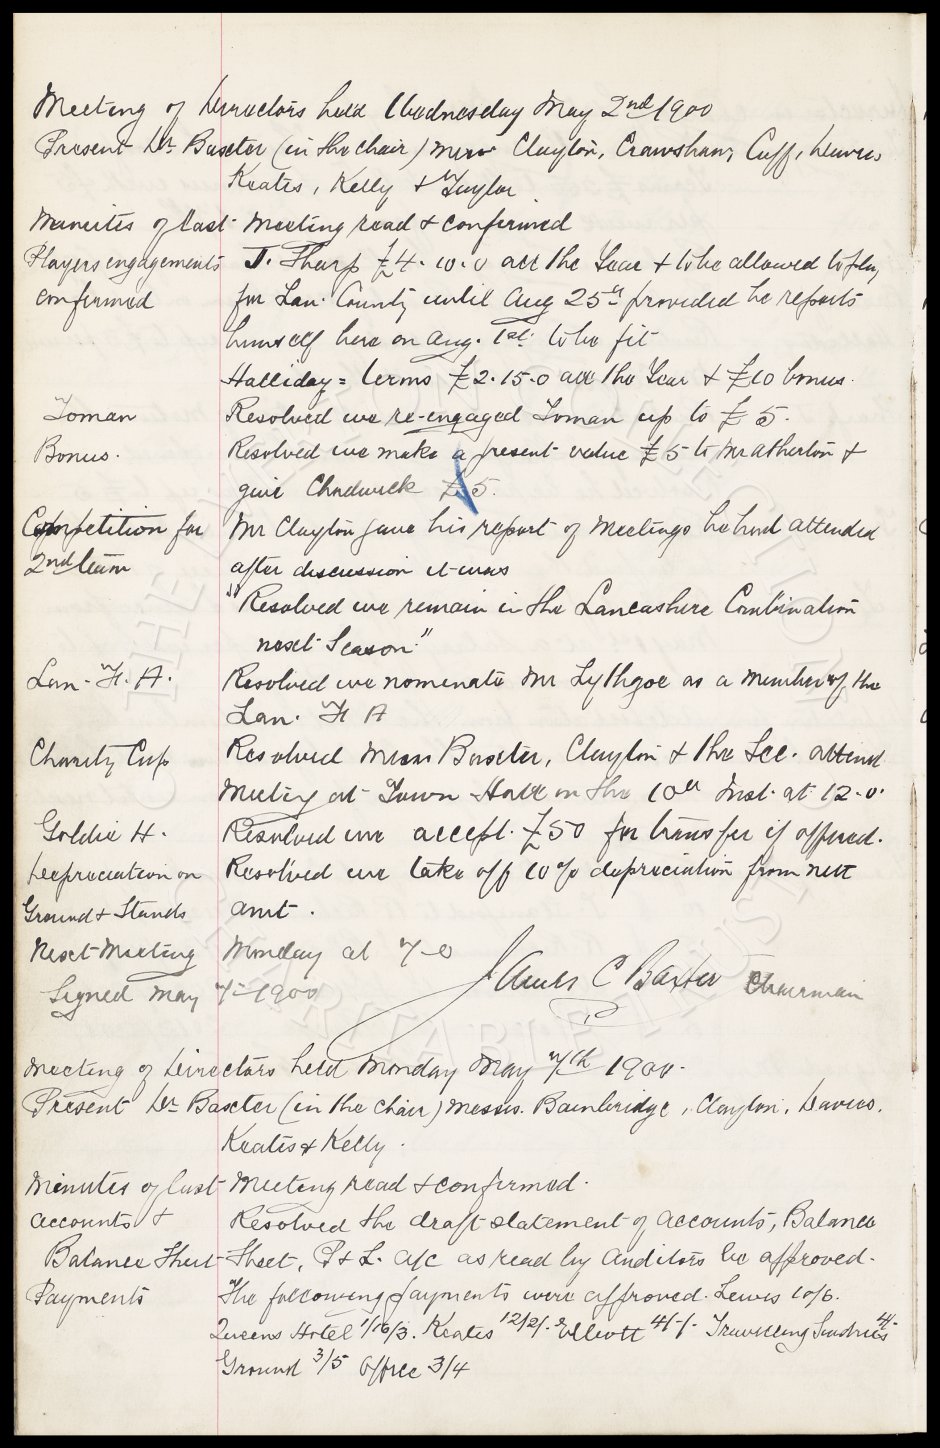 Meeting of Directors held Wednesday May 2nd 1900
Present Dr Baxter (in the chair) Messrs Clayton, Crawshaw, Cuff, Davies
Keates, Kelly & Taylor
Minutes of last Meeting read & confirmed
Players engagements J. Sharp £4.10.0 all the Year & to be allowed to play
confirmed for Lan. County until Aug 25th provided he reports
himself here on Aug. 1st to be fit
Halliday = terms £2.15.0 all the Year & £10 bonus.
Toman Resolved we re-engaged Toman up to £5.
Bonus. Resolved we make a present value £5 to Mr Atherton &
give Chadwick £5.
Competition for Mr Clayton gave his report of Meetings he had attended
2nd team after discussion it was
"Resolved we remain in the Lancashire Combination
next Season."
Lan. F. A. Resolved we nominate Mr Lythgoe as a member of the
Lan. F A
Charity Cup Resolved Messrs Baxter, Clayton & the Sec. attend
Meeting at Town Hall on the 10th Inst. at 12.0.
Goldie H. Resolved we accept £50 for transfer if offered.
Depreciation on Resolved we take off 10% depreciation from nett
Ground & Stands amt.
Next Meeting Monday at 7-0
Signed May 7-1900 James C Baxter Chairman
Meeting of Directors held Monday May 7th 1900.
Present Dr Baxter (in the chair) Messrs. Bainbridge, Clayton, Davies,
Keates & Kelly.
Minutes of last Meeting read & confirmed.
Accounts & Resolved the draft statement of accounts, Balance
Balance Sheet Sheet, P & L. a/c as read by Auditors be approved.
Payments The following payments were approved. Lewis 10/6.
Queens Hotel 1/16/3. Keates 12/2/. Elliott 4/-/- Travelling Sundries 4/-
Ground 3/5 Office 3/4